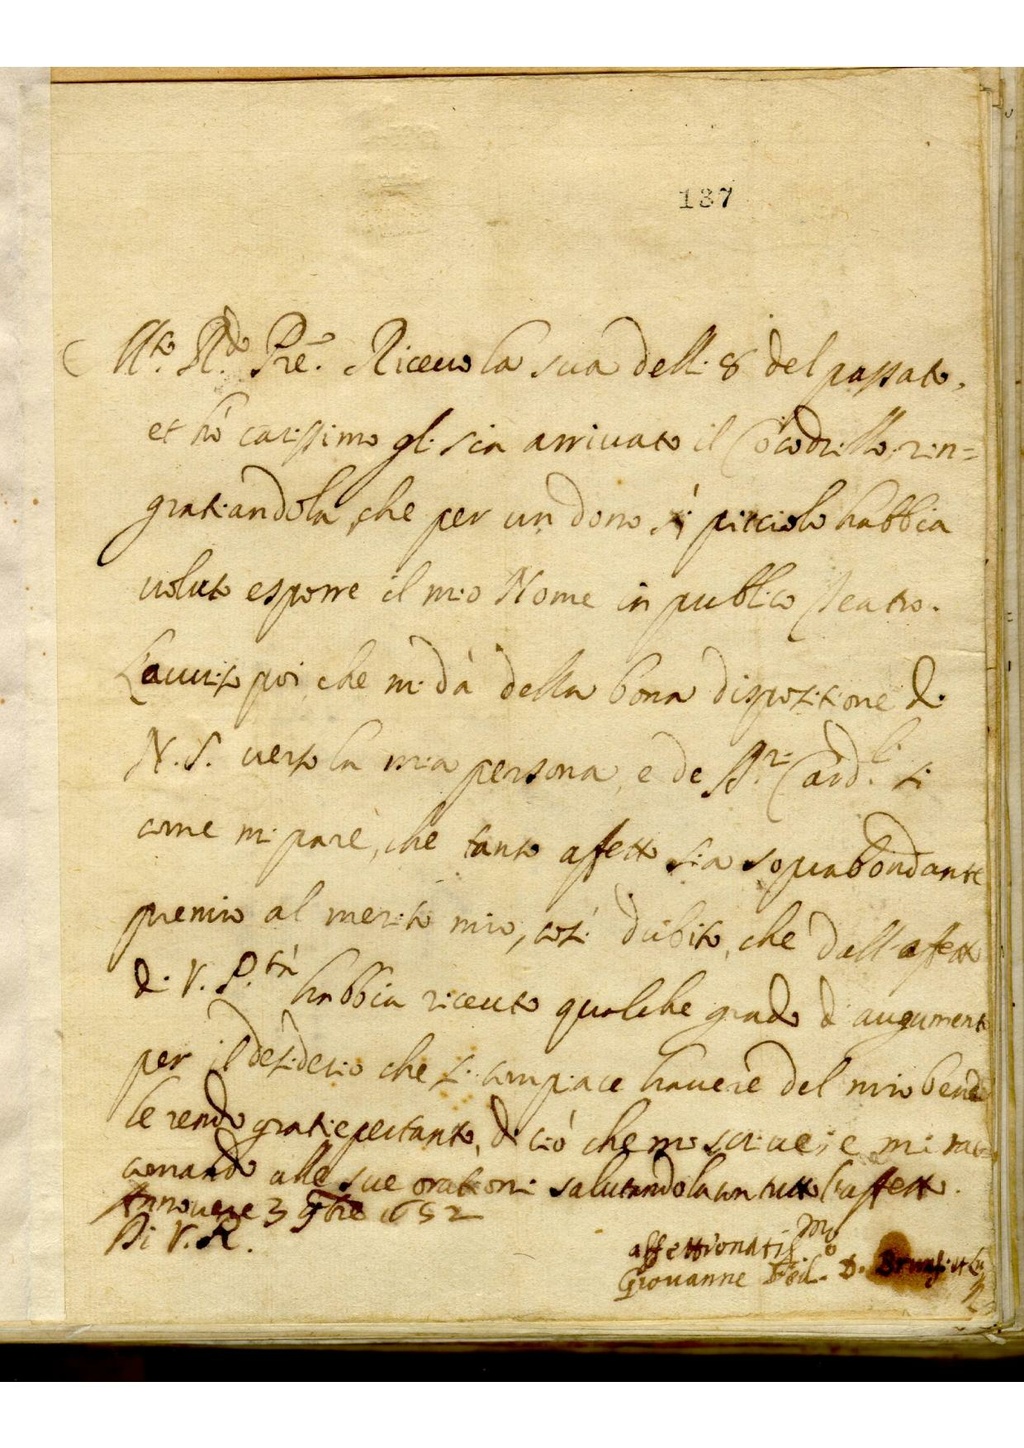 187
M.to R.do Pre. Riceuo la sua delli 8 del passato,
et hò carissimo gli sia arriuato il Cocodrillo, rin=
gratiandola, che per un dono sì picciolo habbia
uoluto esporre il mio Nome in publico Teatro.
L'auuiso poi che mi dà della bona dispositione di
N. S. uerso la mia persona, e de SS.ri Card.li si
come mi pare, che tanto affetto sia soprabondante
premio al merito mio, così dubito, che dall'affetto
di V. P.tà habbia riceuuto qualche grado di augumento
per il desiderio che si compiace hauere del mio bene
le rendo gratie pertanto, di ciò che mi scriue, e mi rac=
comando alle sue orationi salutandola con tutto l'affetto.
Annouere 3 9bre 1652
Di V. R.
affettionatiss.mo
Giouanne Fed.o D. Bruns: et Lu